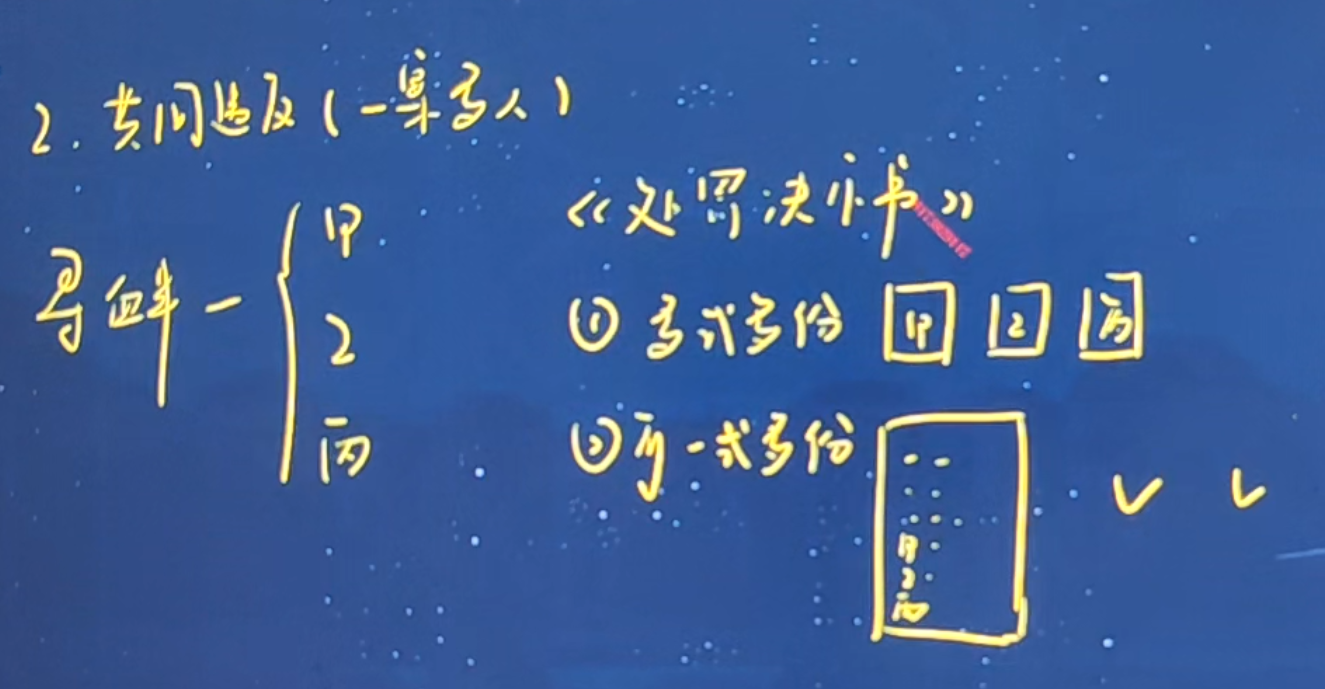 2. 共同违反(一案多人)
寻衅 — { 甲
乙
丙
《处罚决定书》
① 多式多份 甲 乙 丙
② 可一式多份
甲
乙
丙